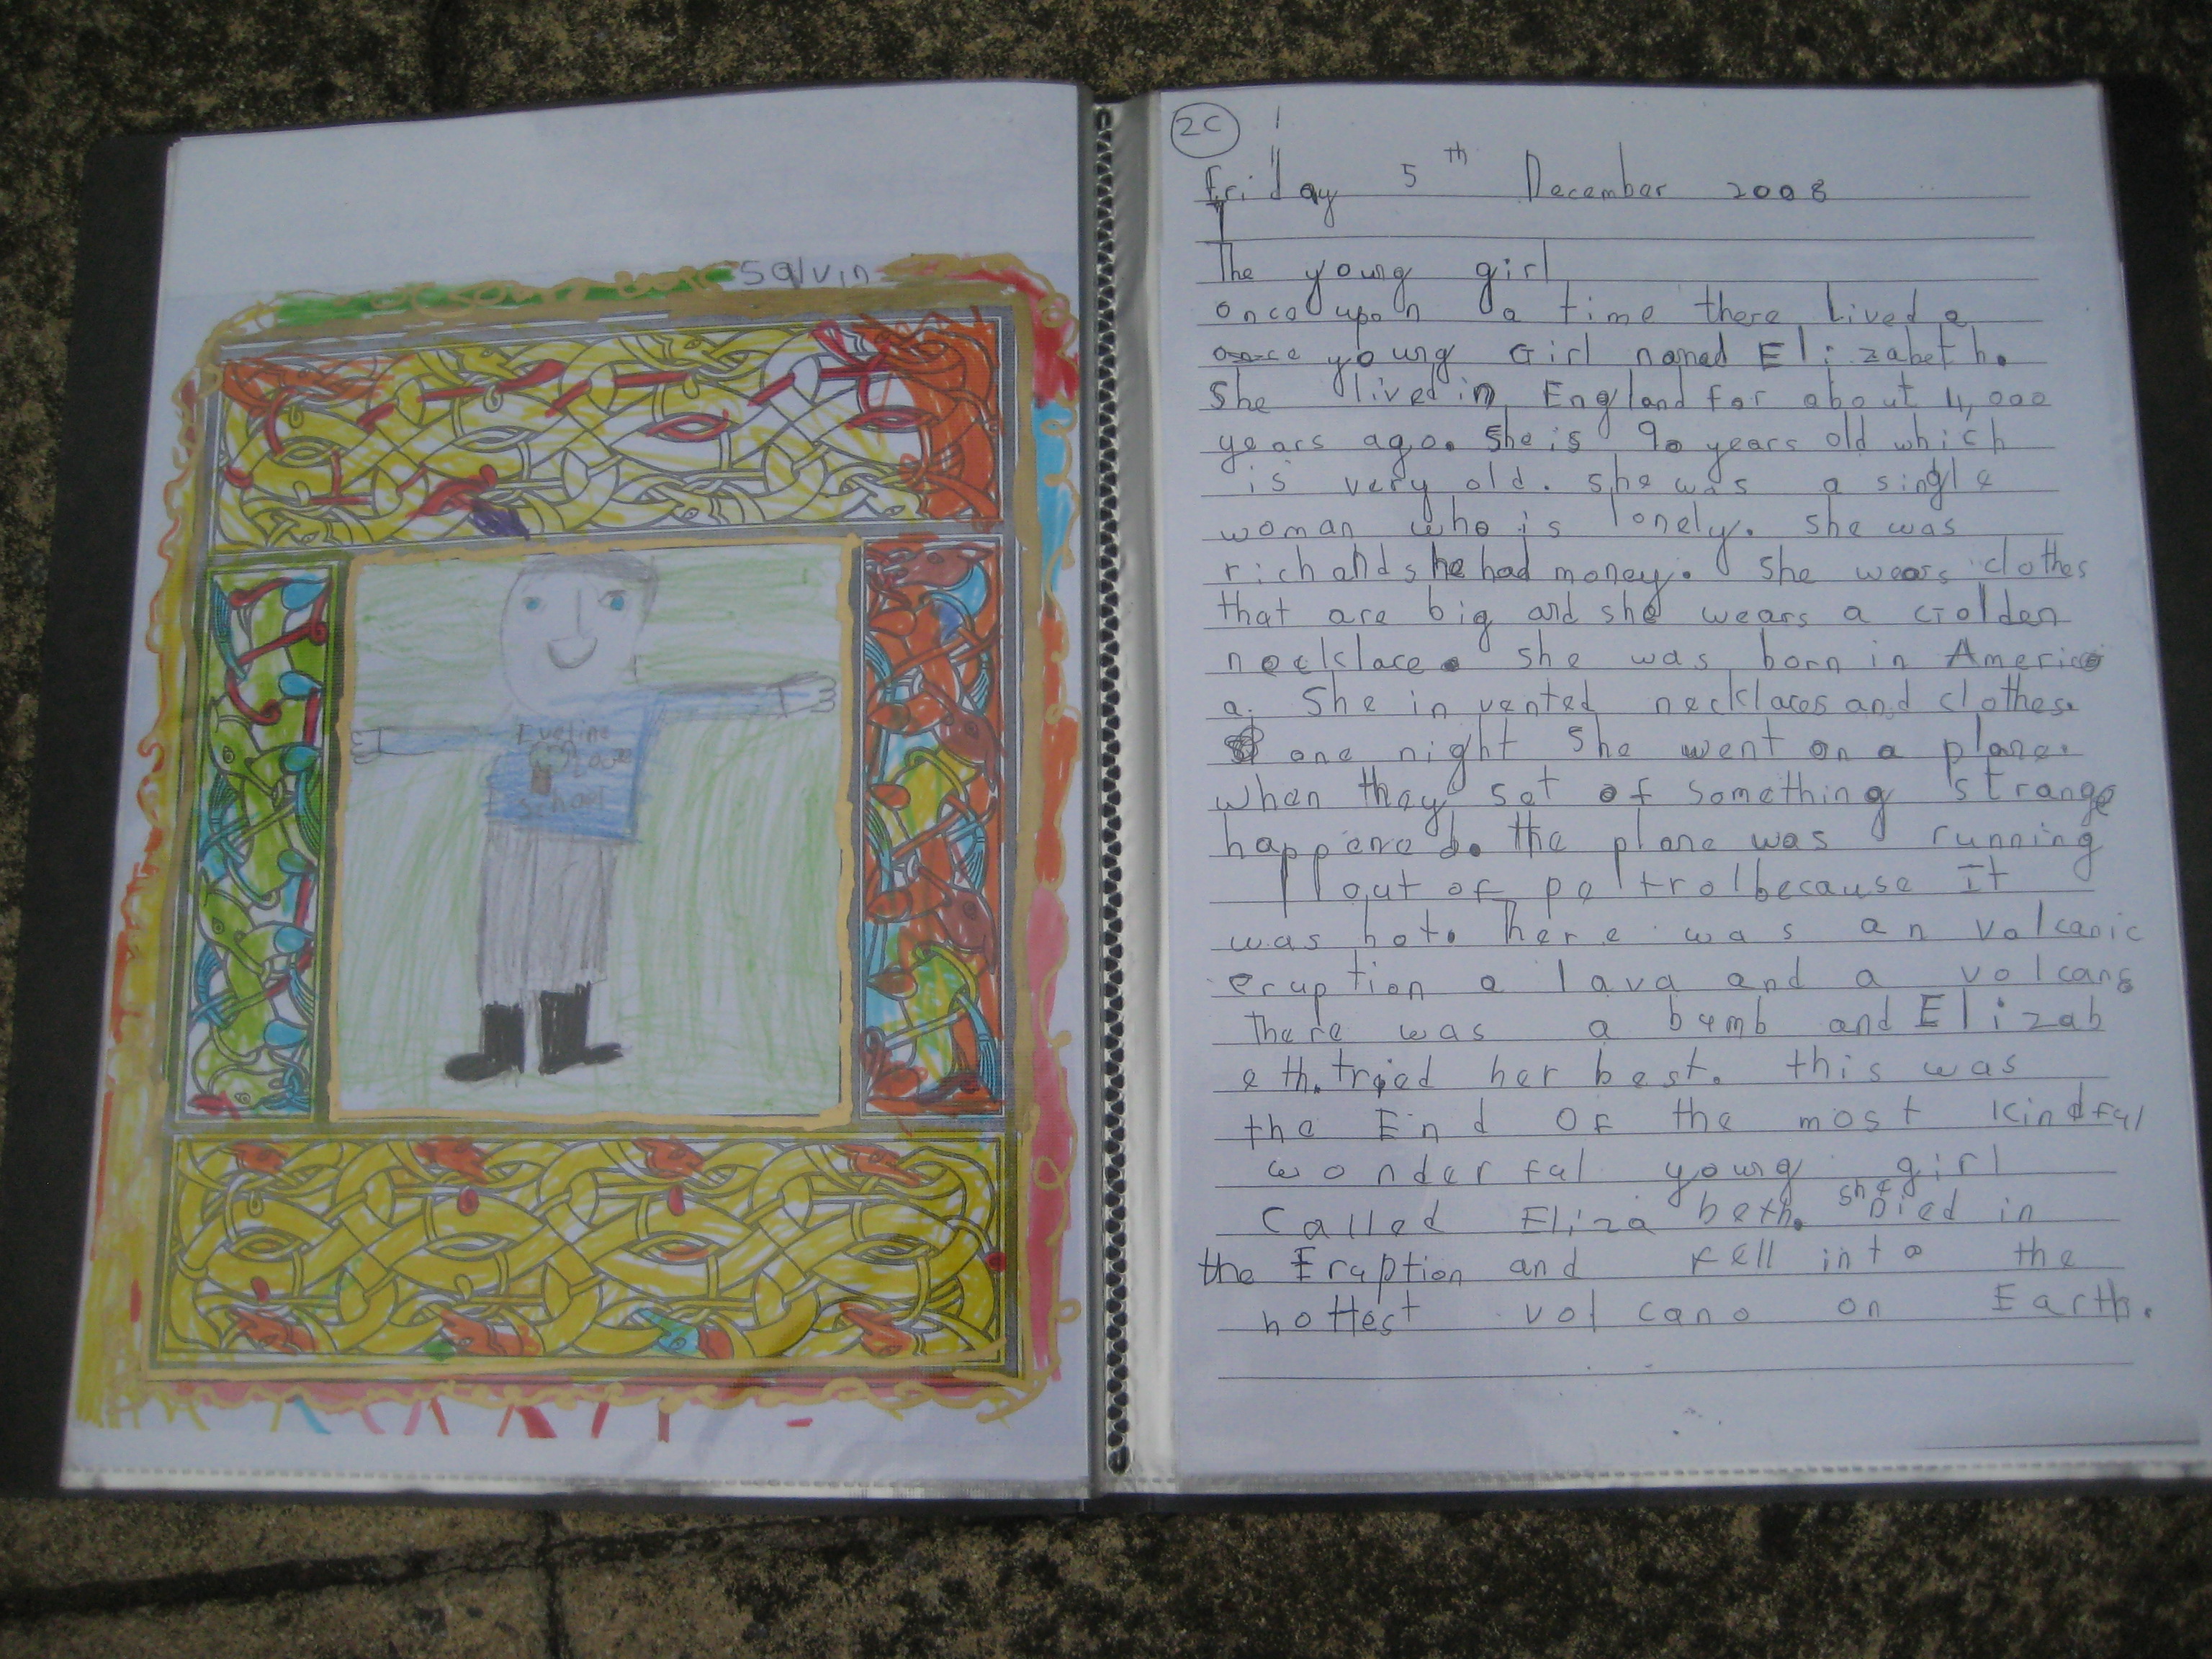 Salvin
Eveline
Lowe
School
2C
Friday 5th December 2008
The young girl
once upon a time there lived a
young Girl named Elizabeth.
She lived in England for about 4,000
years ago. She is 90 years old which
is very old. she was a single
woman who is lonely. she was
rich and she had money. She wears clothes
that are big and she wears a Golden
necklace. She was born in Americ
a. She invented necklaces and clothes.
one night She went on a plane.
When they set of something strange
happened. The plane was running
out of peltrol because It
was hot. There was an volcanic
eruption a lava and a volcano
There was a bumb and Elizab
eth. tried her best. this was
the End Of the most Kindful
wonderful young girl
Called Elizabeth. she Died in
the Eruption and fell into the
hottest volcano on Earth.